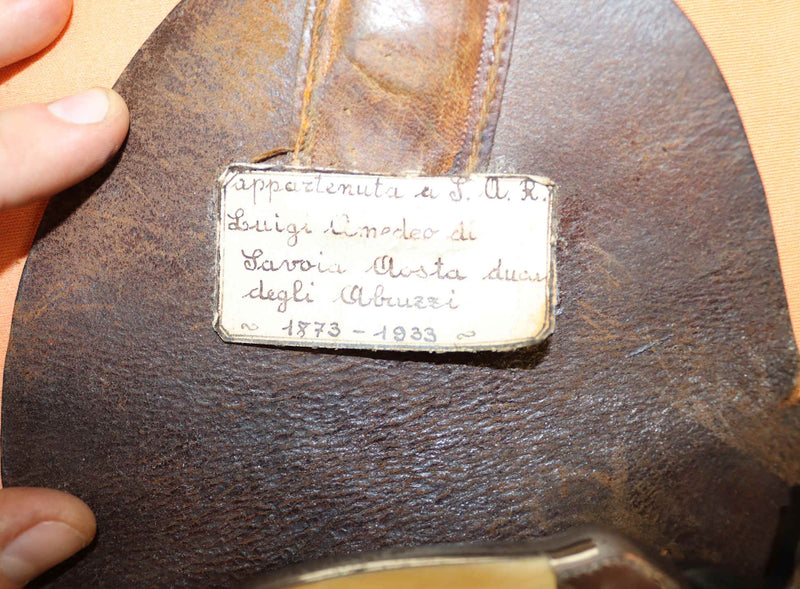 appartenuta a S. A. R.
Luigi Amedeo di
Savoia Aosta duca
degli Abruzzi
~ 1873 - 1933 ~